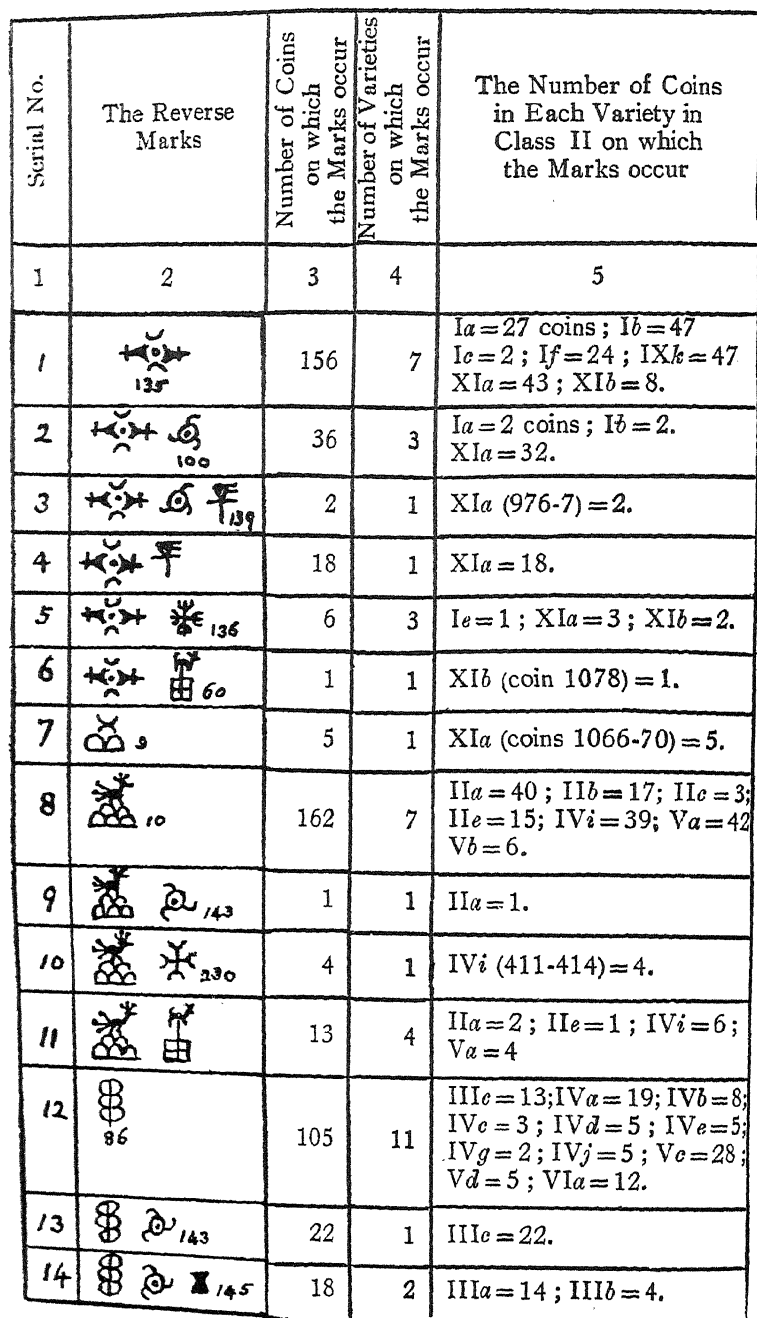 Serial No.
The Reverse
Marks
Number of Coins
on which
the Marks occur
Number of Varieties
on which
the Marks occur
The Number of Coins
in Each Variety in
Class II on which
the Marks occur
1 2 3 4 5
1 135 156 7
Ia=27 coins; Ib=47
Ic=2; If=24; IXk=47
XIa=43; XIb=8.
2 100 36 3
Ia=2 coins; Ib=2.
XIa=32.
3 139 2 1 XIa (976-7)=2.
4 18 1 XIa=18.
5 136 6 3 Ie=1; XIa=3; XIb=2.
6 60 1 1 XIb (coin 1078)=1.
7 9 5 1 XIa (coins 1066-70)=5.
8 10 162 7
IIa=40; IIb=17; IIc=3;
IIe=15; IVi=39; Va=42
Vb=6.
9 143 1 1 IIa=1.
10 230 4 1 IVi (411-414)=4.
11 13 4
IIa=2; IIe=1; IVi=6;
Va=4
12 86 105 11
IIIc=13; IVa=19; IVb=8;
IVc=3; IVd=5; IVe=5;
IVg=2; IVj=5; Vc=28;
Vd=5; VIa=12.
13 143 22 1 IIIc=22.
14 145 18 2 IIIa=14; IIIb=4.